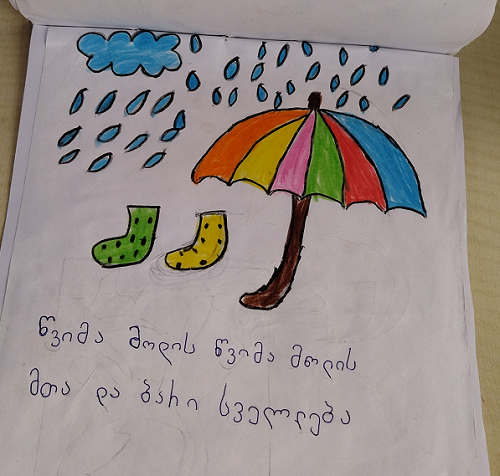 წვიმა მოდის წვიმა მოდის
მთა და ბარი სველდება